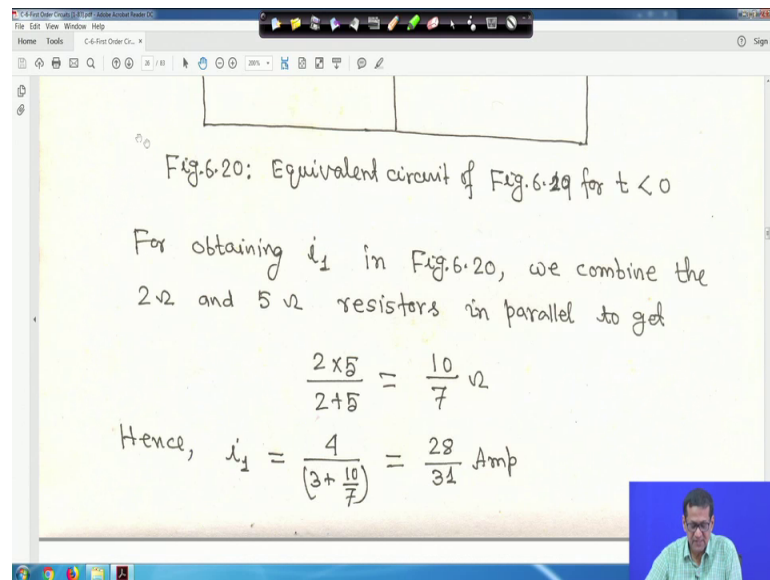 C-6-First Order Circuits (1-83).pdf - Adobe Acrobat Reader DC
File Edit View Window Help
Home Tools C-6-First Order Cir... × Sign
28 / 83 200%
Fig.6.20: Equivalent circuit of Fig.6.19 for t < 0
For obtaining i₁ in Fig.6.20, we combine the
2Ω and 5Ω resistors in parallel to get
2×5/2+5 = 10/7 Ω
Hence, i₁ = 4/(3+10/7) = 28/31 Amp